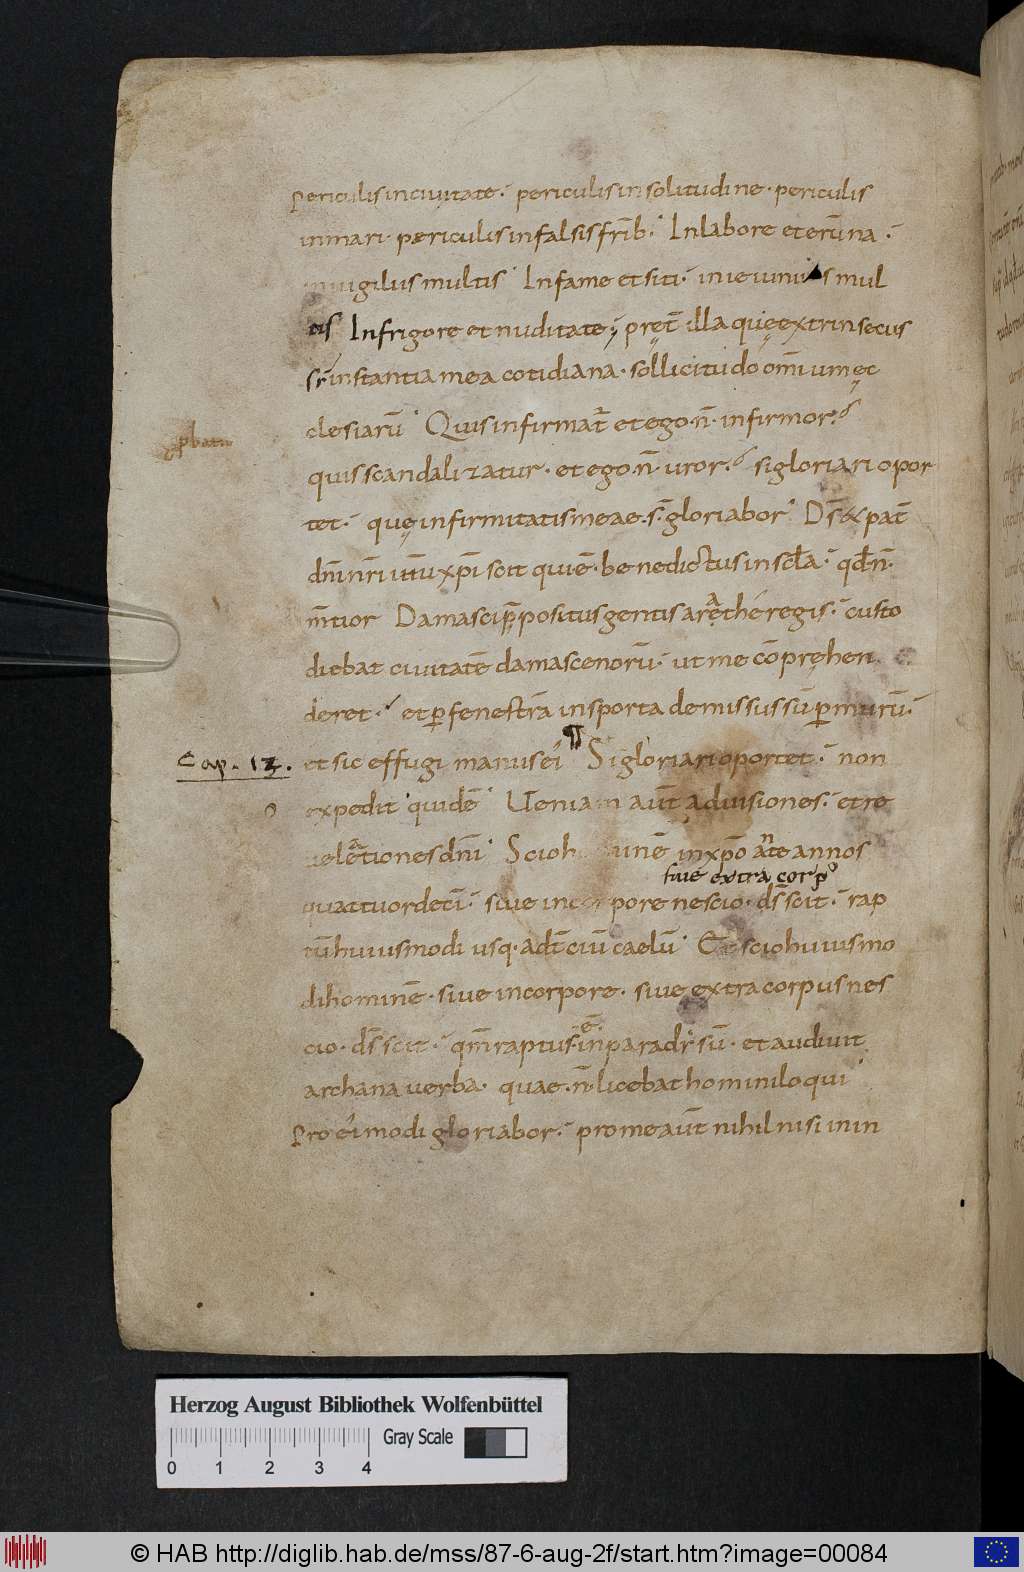 periculis in ciuitate· periculis in solitudine· periculis
in mari· periculis in falsis frīb· In labore et erūna·
uigiliis multis· In fame et siti· in ieiuniis mul
tis In frigore et nuditate; pręt̄ illa quę extrinsecus
sr̄ instantia mea cotidiana· sollicitudo om̄ium ęc
clesiarū· Quis infirmat̄ et ego n̄ infirmor?
quis scandalizatur· et ego n̄ uror? si gloriari opor
tet· quę infirmitatis meae s̄ gloriabor· Ds̄ & pat̄
dn̄i nr̄i iħu xp̄i scit qui ē· benedictus in sc̄la· qd̄ n̄
m̄tior Damasci p̄positus gentis aręthę́ regis· custo
diebat ciuitatē damascenorū· ut me cōpręhen
deret· et ꝑ fenestrā in sporta demissus sū ꝑ murū·
Cap. 12.
et sic effugi manus ei ¶ Si gloriari oportet· non
expedit quidē Ueniam aūt ad uisiones· et re
uelationes dn̄i· Scio h unē in xp̄o ante annos
siue extra corp9
quattuordecī· siue in corpore nescio· ds̄ scit· rap
tū huiusmodi usq· ad t̄ciū caelū· Et scio huiusmo
di hominē· siue in corpore· siue extra corpus nes
cio· ds̄ scit· qm̄ raptus ē in paradisū· et audiuit
archana uerba· quae n̄ licebat homini loqui
Pro ei modi gloriabor· pro me aūt nihil nisi in in
Herzog August Bibliothek Wolfenbüttel
Gray Scale
0 1 2 3 4
© HAB http://diglib.hab.de/mss/87-6-aug-2f/start.htm?image=00084